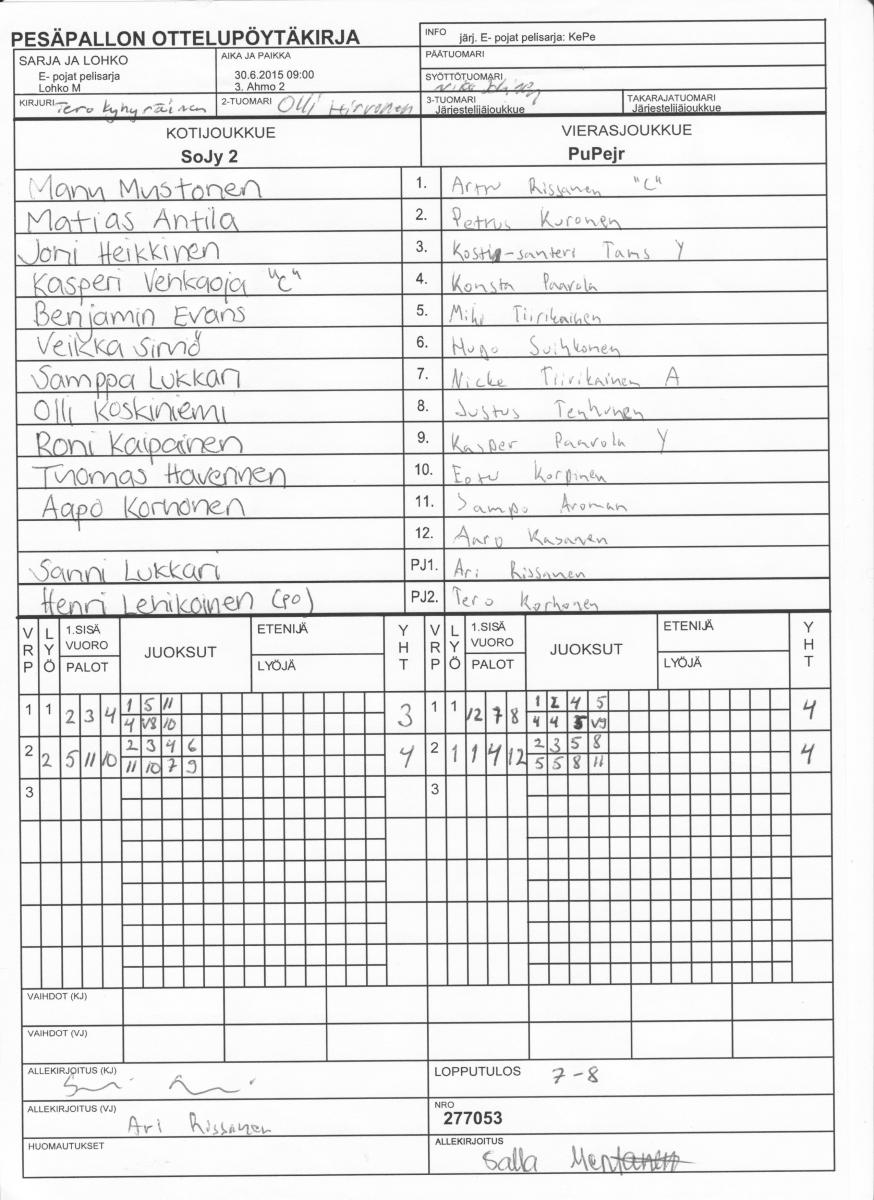 PESÄPALLON OTTELUPÖYTÄKIRJA
INFO järj. E- pojat pelisarja: KePe
PÄÄTUOMARI
SARJA JA LOHKO
E- pojat pelisarja
Lohko M
AIKA JA PAIKKA
30.6.2015 09:00
3. Ahmo 2
SYÖTTÖTUOMARI
KIRJURI Tero Kyhyräinen
2-TUOMARI Olli Hirvonen
3-TUOMARI
Järjestelijäjoukkue
TAKARAJATUOMARI
Järjestelijäjoukkue
KOTIJOUKKUE
SoJy 2
VIERASJOUKKUE
PuPejr
Manu Mustonen 1. Arttu Rissanen "C"
Matias Antila 2. Petrus Kuronen
Joni Heikkinen 3. Kostja-santeri Tams Y
Kasperi Vehkaoja "C" 4. Konsta Paarola
Benjamin Evans 5. Miki Tiirikainen
Veikka Simiö 6. Hugo Suihkonen
Samppa Lukkari 7. Nicke Tiirikainen A
Olli Koskiniemi 8. Justus Tenhunen
Roni Kaipainen 9. Kasper Paarola Y
Thomas Havennen 10. Eetu Korpinen
Aapo Korhonen 11. Sampo Aroman
12. Aaro Kasanen
Sanni Lukkari PJ1. Ari Rissanen
Henri Lehikoinen (PO) PJ2. Tero Korhonen
VRP LYÖ 1.SISÄ VUORO PALOT JUOKSUT ETENIJÄ LYÖJÄ YHT VRP LYÖ 1.SISÄ VUORO PALOT JUOKSUT ETENIJÄ LYÖJÄ YHT
1 1 2 3 4 1 5 11 3 1 1 12 7 8 1 2 4 5 4
4 V8 10 4 4 5 V9
2 2 5 11 10 2 3 4 6 4 2 1 1 4 12 2 3 5 8 4
11 10 7 9 5 5 8 11
3 3
VAIHDOT (KJ)
VAIHDOT (VJ)
ALLEKIRJOITUS (KJ)
LOPPUTULOS 7-8
ALLEKIRJOITUS (VJ) Ari Rissanen
NRO
277053
HUOMAUTUKSET
ALLEKIRJOITUS
Salla Mertanen